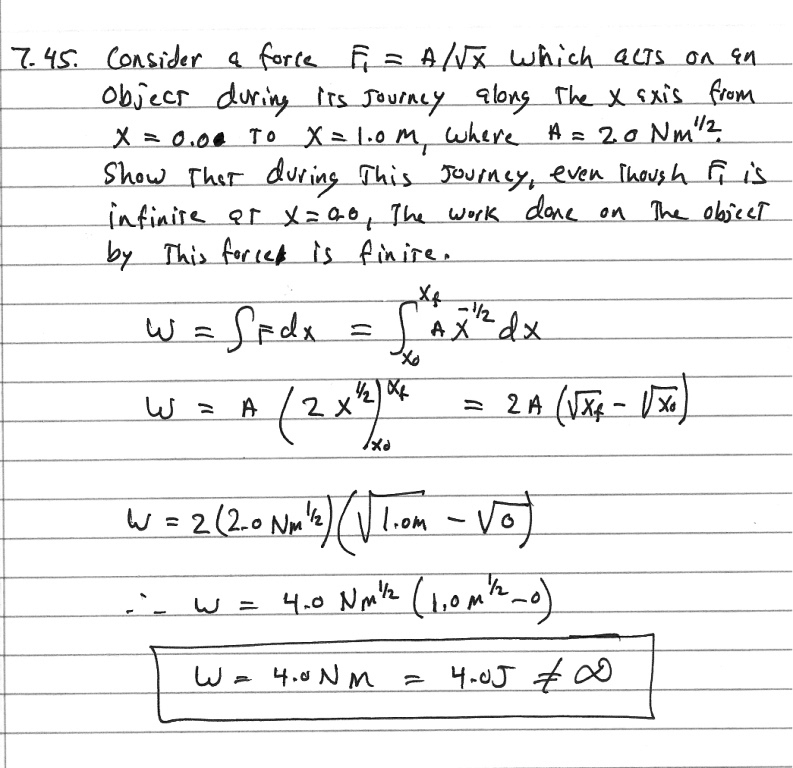 7.45. Consider a force F₁ = A/√x which acts on an
object during its journey along the x axis from
x = 0.0 to x = 1.0 m, where A = 2.0 Nm^1/2.
Show that during this journey, even though F₁ is
infinite at x = 0.0, the work done on the object
by this force is finite.
W = ∫F dx = ∫_{x₀}^{x_f} A x^{-1/2} dx
W = A (2 x^{1/2})|_{x₀}^{x_f} = 2A (√x_f - √x₀)
W = 2(2.0 Nm^{1/2})(√1.0m - √0)
∴ W = 4.0 Nm^{1/2} (1.0 m^{1/2} - 0)
W = 4.0 N m = 4.0J ≠ ∞